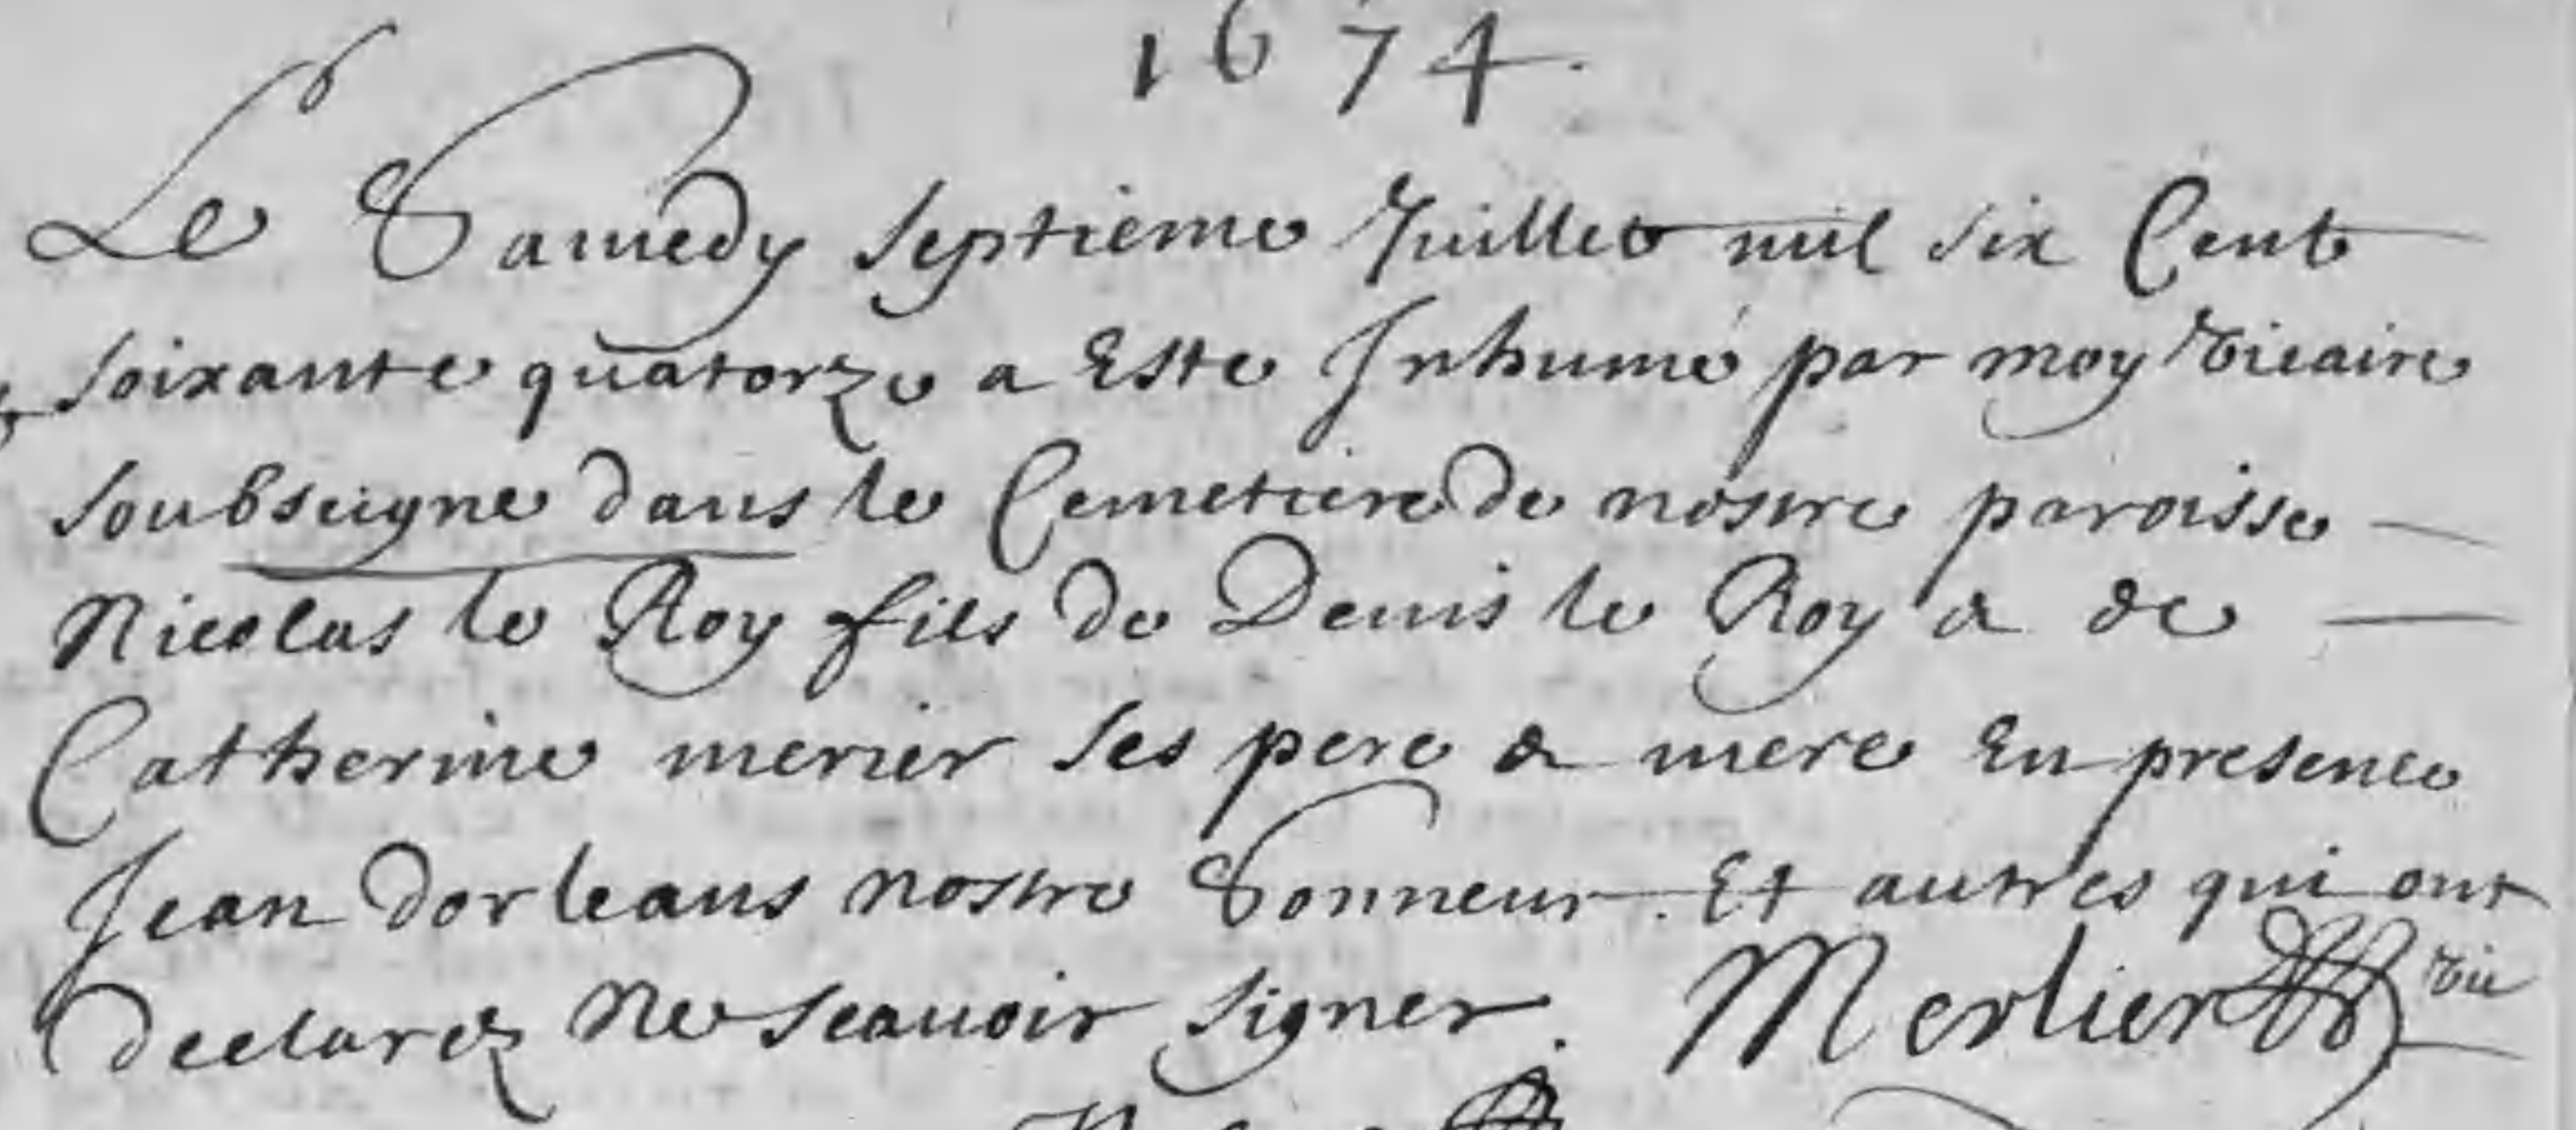 1674.
Le Samedy septieme Juillet mil six Cent
soixante quatorze a Este Inhumé par moy vicaire
soubseigne dans le Cemetiere de nostre paroisse
Nicolas le Roy fils de Denis le Roy & de
Catherine merier ses pere & mere En presence
Jean dorleans nostre Sonneur. Et autres qui ont
declarez Ne scauoir signer. Merlier vic